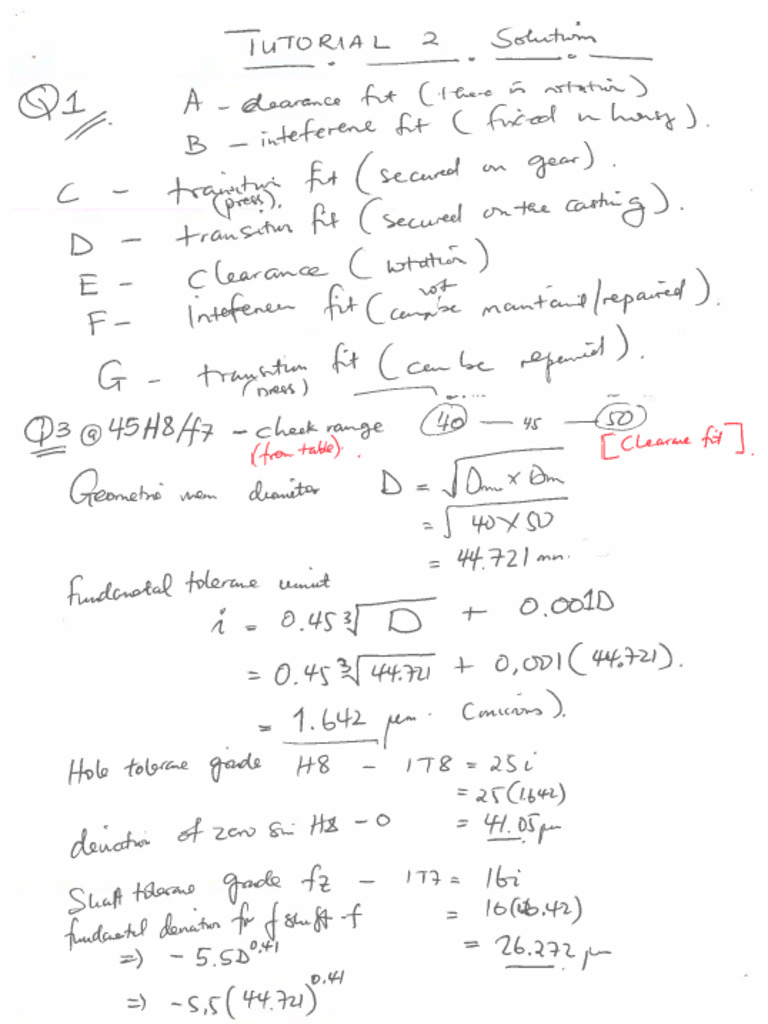 TUTORIAL 2 Solution
Q1 A – clearance fit (there is rotation)
B – inteference fit (fixed in housing).
C – transition fit (secured on gear).
(press).
D – transition fit (secured on the casting).
E – Clearance (rotation)
F – Inteference fit (cannot be maintained/repaired).
G – transition fit (can be repaired).
(press)
Q3 @ 45H8/f7 – check range 40 — 45 — 50
(from table). [Clearance fit].
Geometric mean diameter D = √Dm × Dm
= √40 × 50
= 44.721 mm.
Fundamental tolerance unit
i = 0.45 ∛D + 0.001D
= 0.45 ∛44.721 + 0,001(44.721).
= 1.642 µm. (microns).
Hole tolerance grade H8 – IT8 = 25i
= 25(1.642)
deviation of zero sin H8 – 0 = 41.05 µm
Shaft tolerance grade f7 – IT7 = 16i
fundamental deviation for f shaft – f = 16(16.42)
⇒ – 5.5D^0.41 = 26.272 µm
⇒ – 5,5(44.721)^0.41